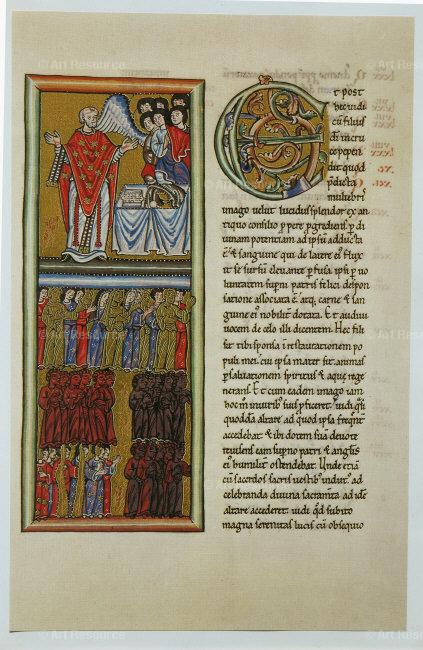 © Art Resource
Et post
hec uidi
cū filius
dei in cru
ce pepen
dit quod
p̄dicta
muliebris
imago uelut lucidus splendor ex an
tiquo consilio p̱pere p̱gredienſ p̱ di
uinam potentiam ad ipsū adducta
ē & sanguine qui de latere ei᷒ flux
it se sursū eleuante p̱fusa ipsi p̱ uo
luntatem sup̱ni patris felici despon
satione associata ē atq; carne & san
guine ei᷒ nobilit̄ dotata. Et audiui
uocem de celo illi dicentem. Hec fili
sit tibi sponsa in restaurationem po
puli mei. cui ipsa mater sit animas
p̱ saluationem spiritus & aquę rege
nerans. Et cum eadem imago iam
hoc m̄ in uirib᷒ suis p̱ficeret uidi q̄si
quoddā altare ad quod ipsa freq̄nt̄
accedebat & ibi dotem suā deuote
reuisens eam sup̱no patri & angl̄is
ei᷒ humilit̄ ostendebat. Unde etiā
cū sacerdos sacris uestib᷒ indut᷒ ad
celebranda diuina sacram̄ta ad idē
altare accederet uidi qđ subito
magna serenitas lucis cū obsequio
xc.
© Art Resource